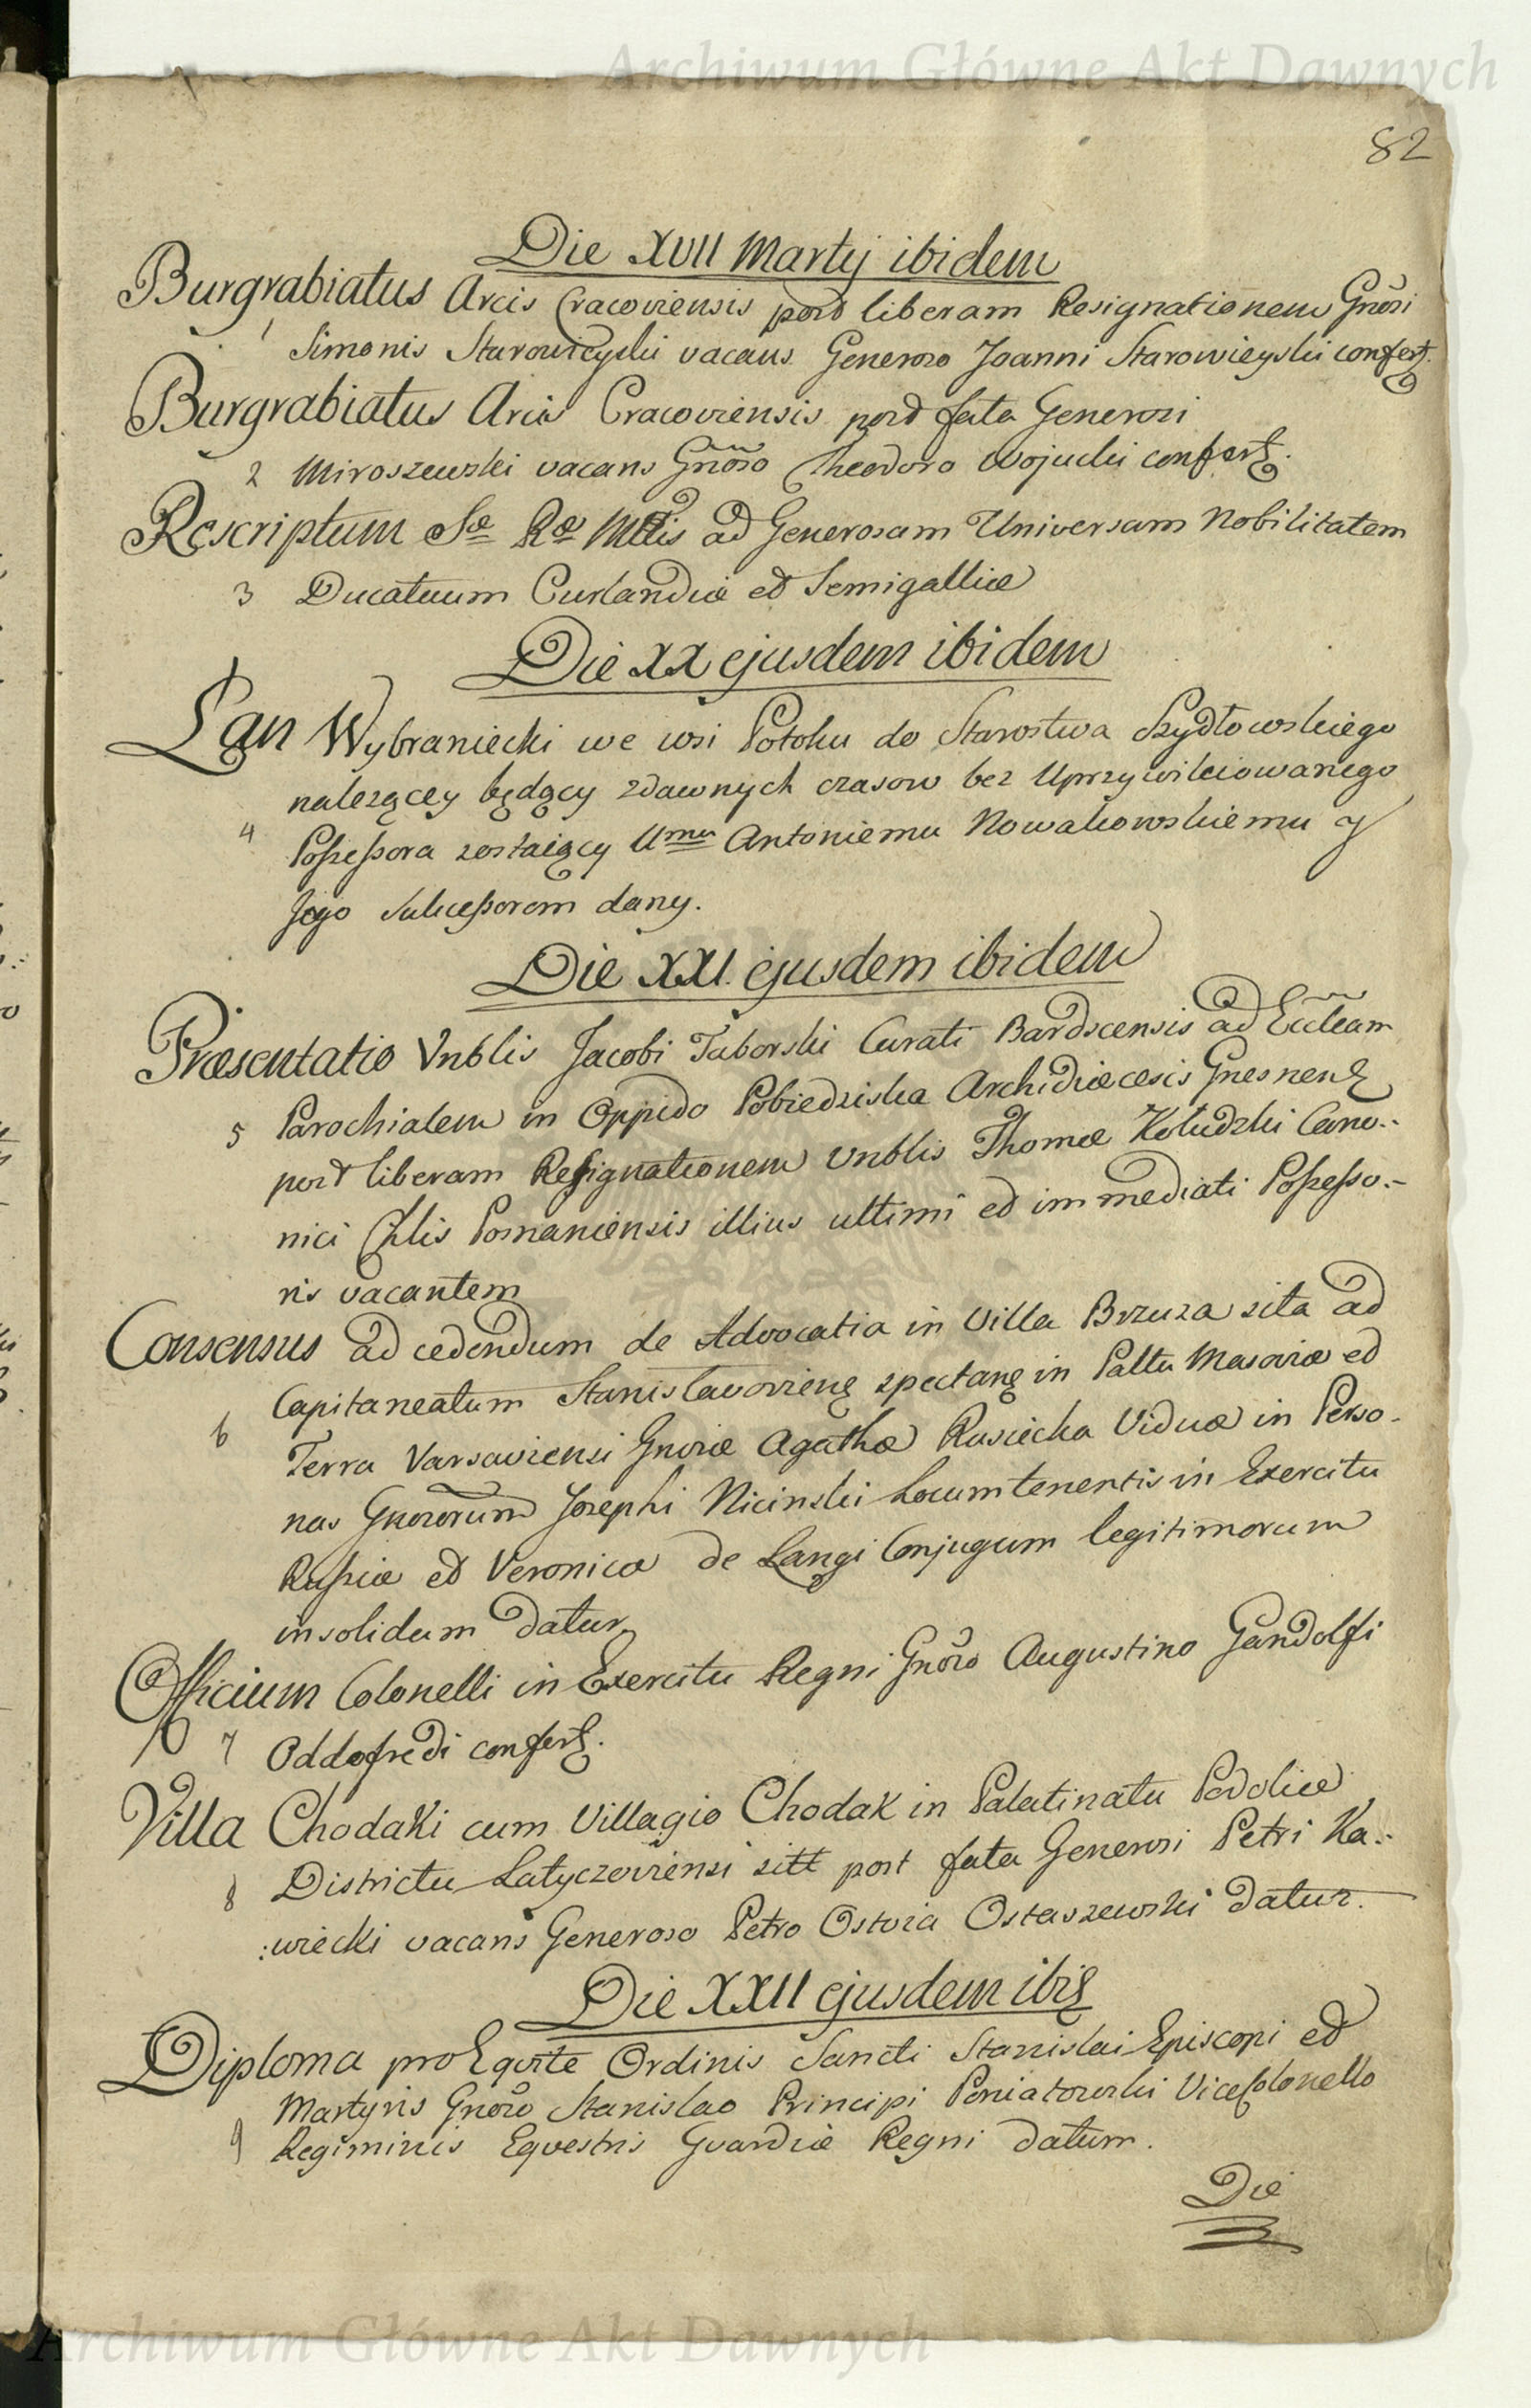 Archiwum Główne Akt Dawnych
82
Die XVII Martij ibidem
Burgrabiatus Arcis Cracoviensis post liberam Resignationem Gnõsi
1 Simonis Starowieyski vacans Generoso Joanni Starowieyski confert.
Burgrabiatus Arcis Cracoviensis post fata Generosi
2 Miroszewski vacans Gnõso Theodoro Wojucki confert.
Rescriptum Sæ Ræ Mttis ad Generosam Universam Nobilitatem
3 Ducatuum Curlandiæ et Semigalliæ
Die XX ejusdem ibidem
Łan Wybraniecki we wsi Potoku do Starostwa Szydłowskiego
należącey będący zdawnych czasow bez Uprzywileiowanego
4 Possessora zostaiący Umu Antoniemu Nowakowskiemu y
Jego Sukcessorom dany.
Die XXI. ejusdem ibidem
Præsentatio Vnblis Jacobi Taborski Curati Bardscensis ad Eccleam
5 Parochialem in Oppido Pobiedziska Archidiæcesis Gnesnens
post liberam Resignationem Vnblis Thomæ Kołudzki Cano-
nici Chlis Posnaniensis illius ultimi et immediati Possesso-
ris vacantem
Consensus ad cedendum de Advocatia in Villa Brzuza sita ad
Capitaneatum Stanislavoviens spectans in Pallu Masoviæ et
6 Terra Varsaviensi Gnosæ Agathæ Rusiecka Viduæ in Perso-
nas Gnosorum Josephi Nicinski Locumtenentis in Exercitu
Russiæ et Veronicæ de Langi Conjugum legitimorum
insolidum datur
Officium Colonelli in Exercitu Regni Gnõso Augustino Gandolfi
7 Oddofredi confert.
Villa Chodaki cum Villagio Chodak in Palatinatu Podoliæ
8 Districtu Latyczoviensi sitt post fata Generosi Petri Ka-
:wiecki vacans Generoso Petro Ostoia Ostaszewski datur.
Die XXII ejusdem ibid
Diploma pro Eqvite Ordinis Sancti Stanislai Episcopi et
Martyris Gnõso Stanislao Principi Poniatowski ViceColonello
9 Regiminis Eqvestris Gvardiæ Regni datum.
Die
Archiwum Główne Akt Dawnych